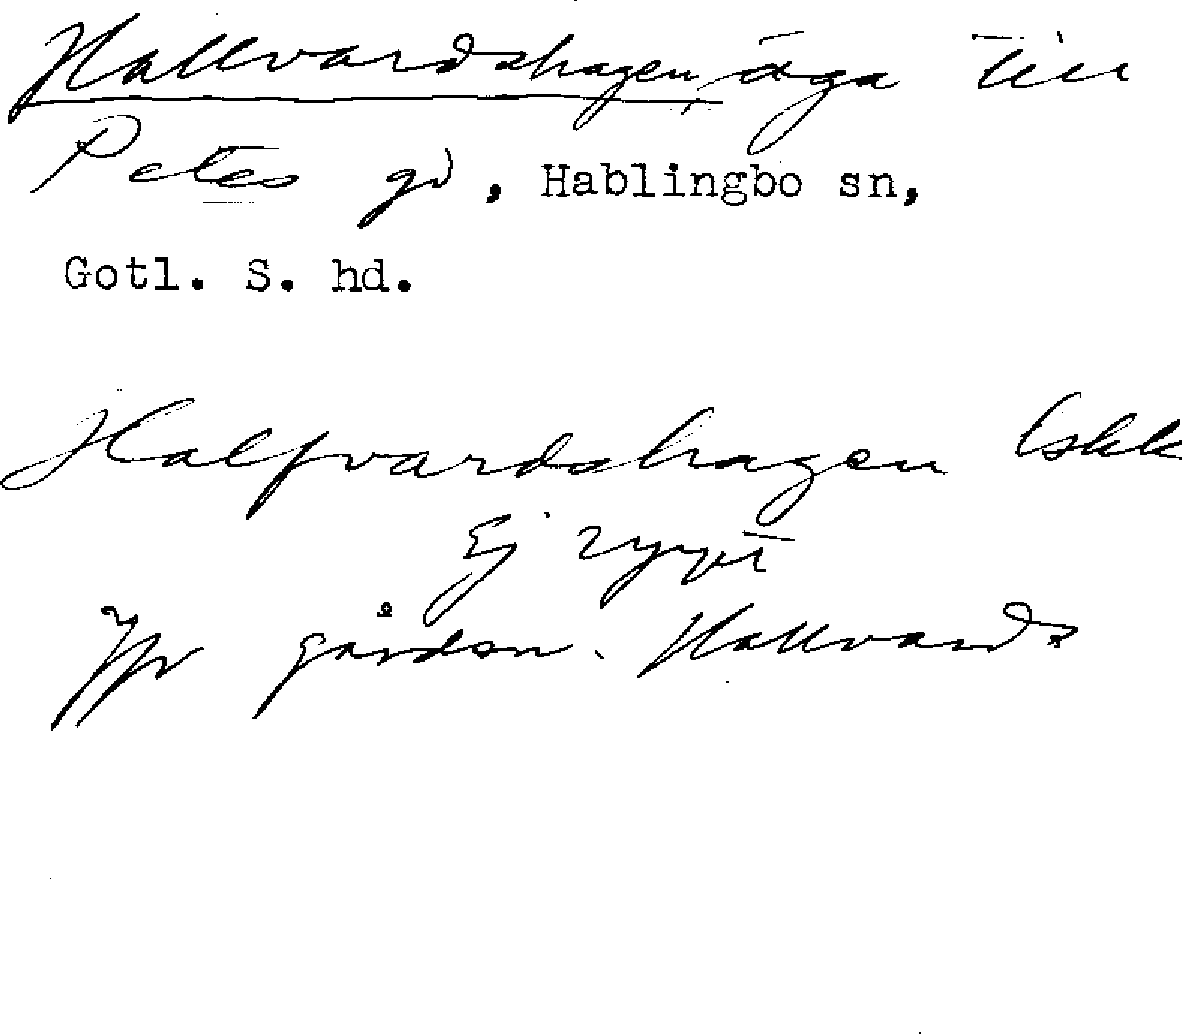 Hallvardshagen, äga till
Petes gd, Hablingbo sn,
Gotl. S. hd.
Halfvardshagen lskk
Ej rypt
Jfr gårdsn. Hallvards